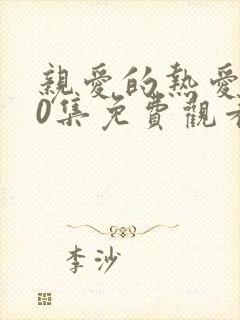 親愛的熱愛
0集免費觀看
李沙